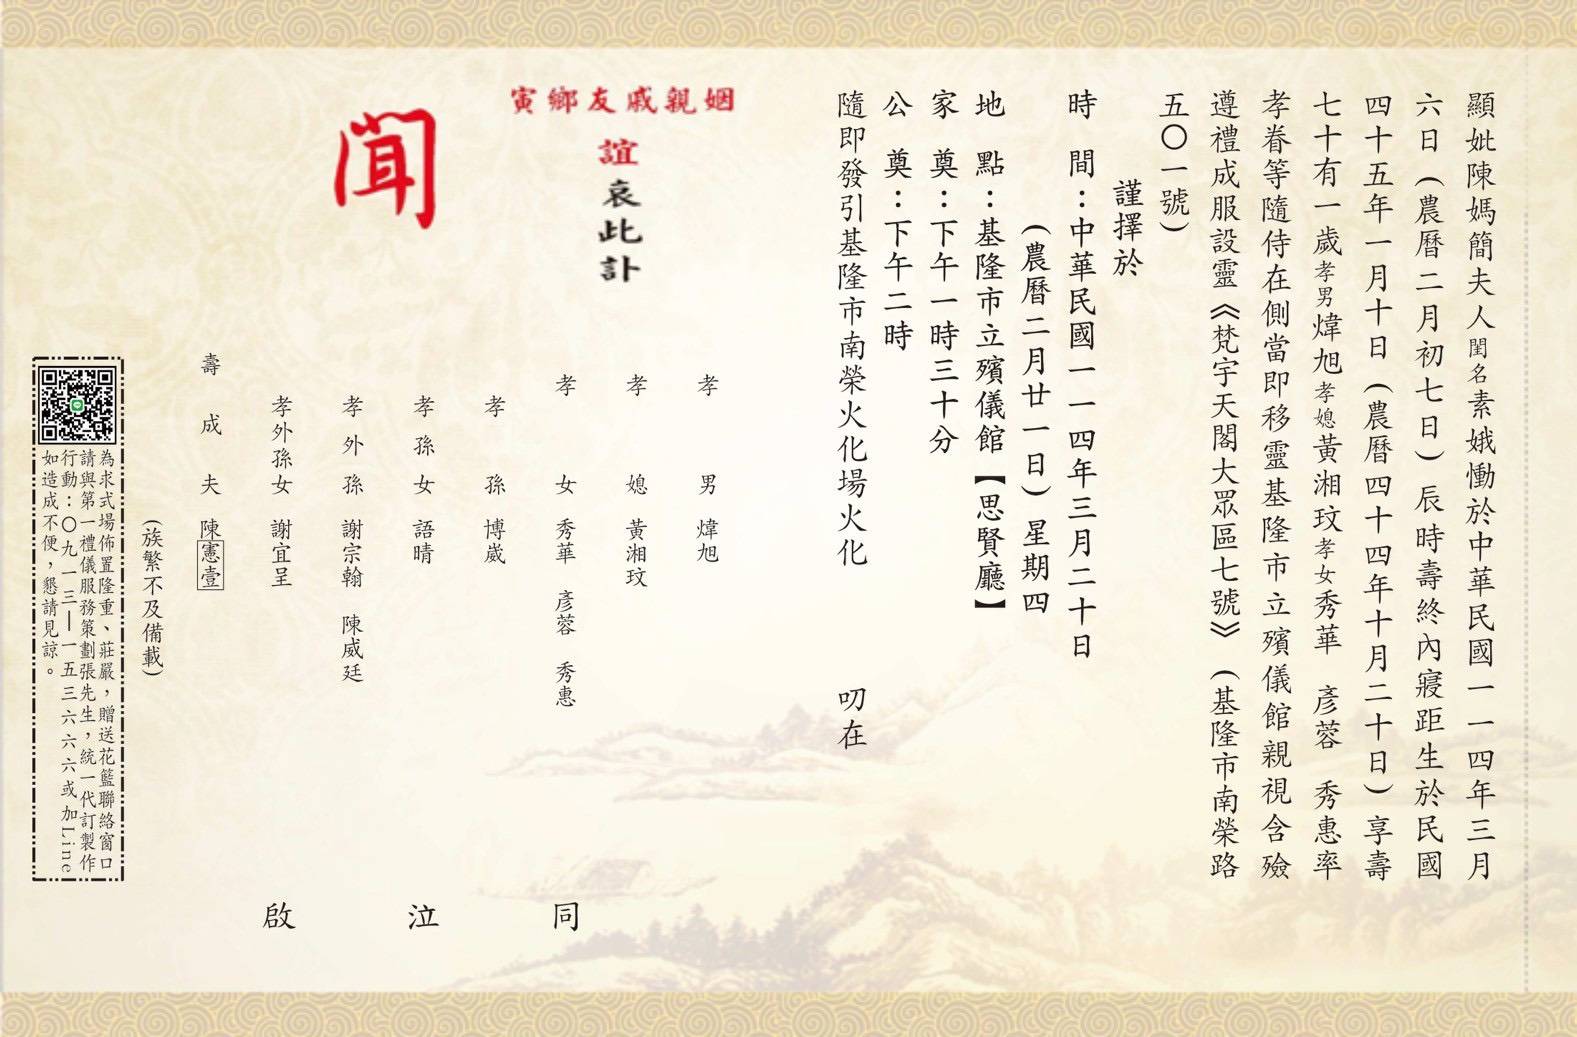 顯妣陳媽簡夫人閨名素娥慟於中華民國一一四年三月
六日(農曆二月初七日)辰時壽終內寢距生於民國
四十五年一月十日(農曆四十四年十月二十日)享壽
七十有一歲孝男煒旭孝媳黃湘玟孝女秀華 彥蓉 秀惠率
孝眷等隨侍在側當即移靈基隆市立殯儀館親視含殮
遵禮成服設靈《梵宇天閣大眾區七號》(基隆市南榮路
五〇一號)
謹擇於
時 間：中華民國一一四年三月二十日
(農曆二月廿一日)星期四
地 點：基隆市立殯儀館【思賢廳】
家 奠：下午一時三十分
公 奠：下午二時
隨即發引基隆市南榮火化場火化 叨在
姻親戚友鄉寅
誼哀此訃
聞
孝 男 煒旭
孝 媳 黃湘玟
孝 女 秀華 彥蓉 秀惠
孝 孫 博崴
孝孫女 語晴
孝外孫 謝宗翰 陳威廷
孝外孫女 謝宜呈
壽成夫 陳憲壹
同 泣 啟
(族繁不及備載)
為求式場佈置隆重、莊嚴，贈送花籃聯絡窗口
請與第一禮儀服務策劃張先生，統一代訂製作
行動：〇九一三—一五三六六六或加Line
如造成不便，懇請見諒。